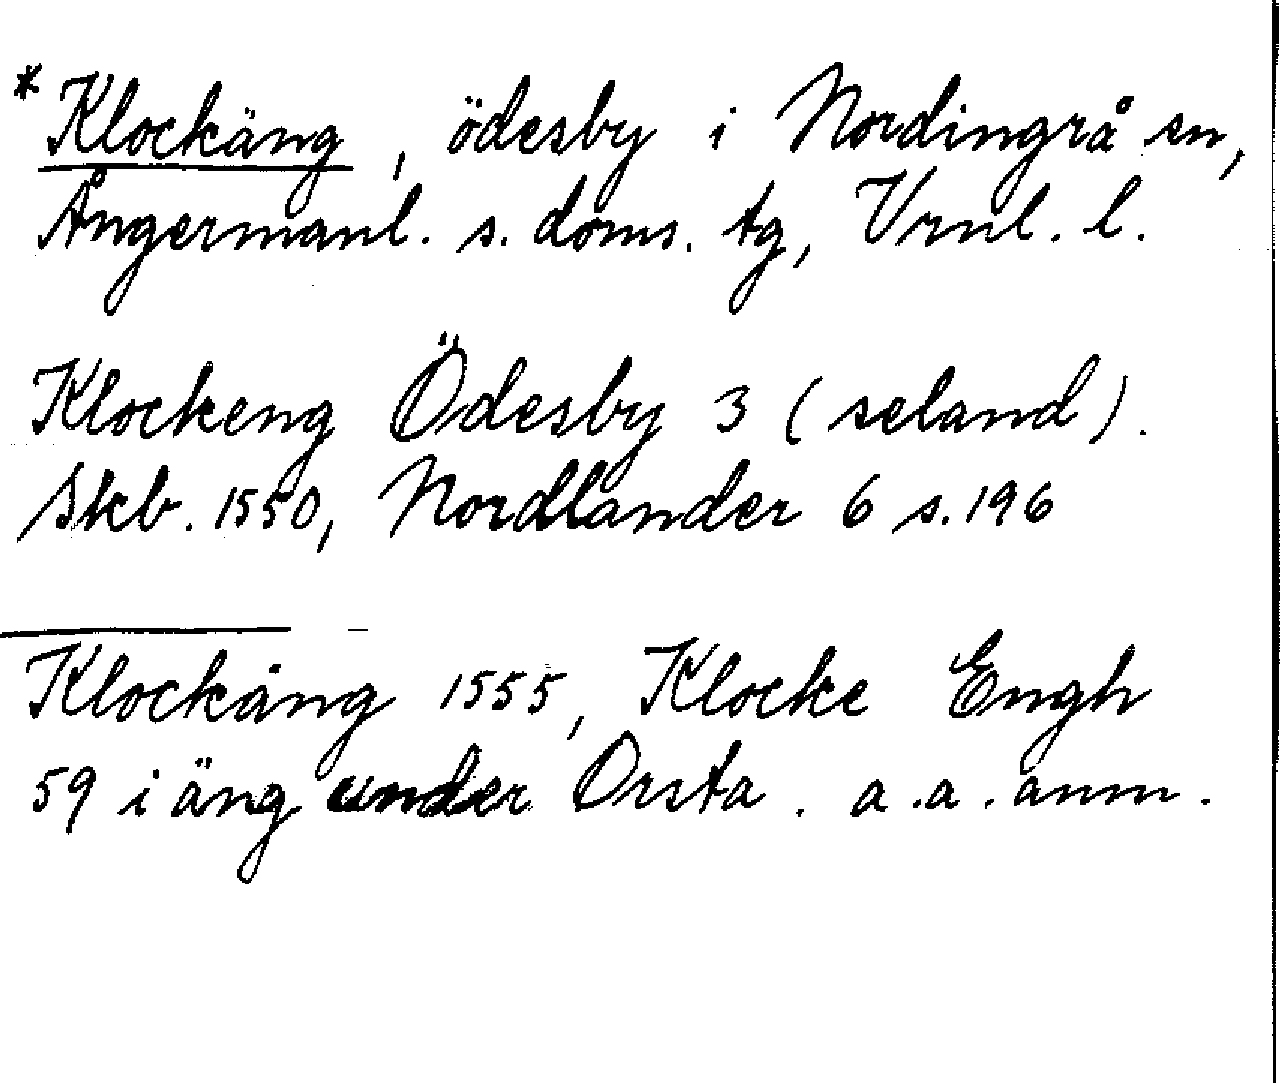 *Klockäng, ödesby i Nordingrå sn,
Ångermanl. s. doms. tg, Vrnl. l.
Klockeng Ödesby 3 (seland).
Skb. 1550, Nordlander 6 s. 196
Klockång 1555, Klocke Engh
59 i äng under Orsta. a.a. anm.